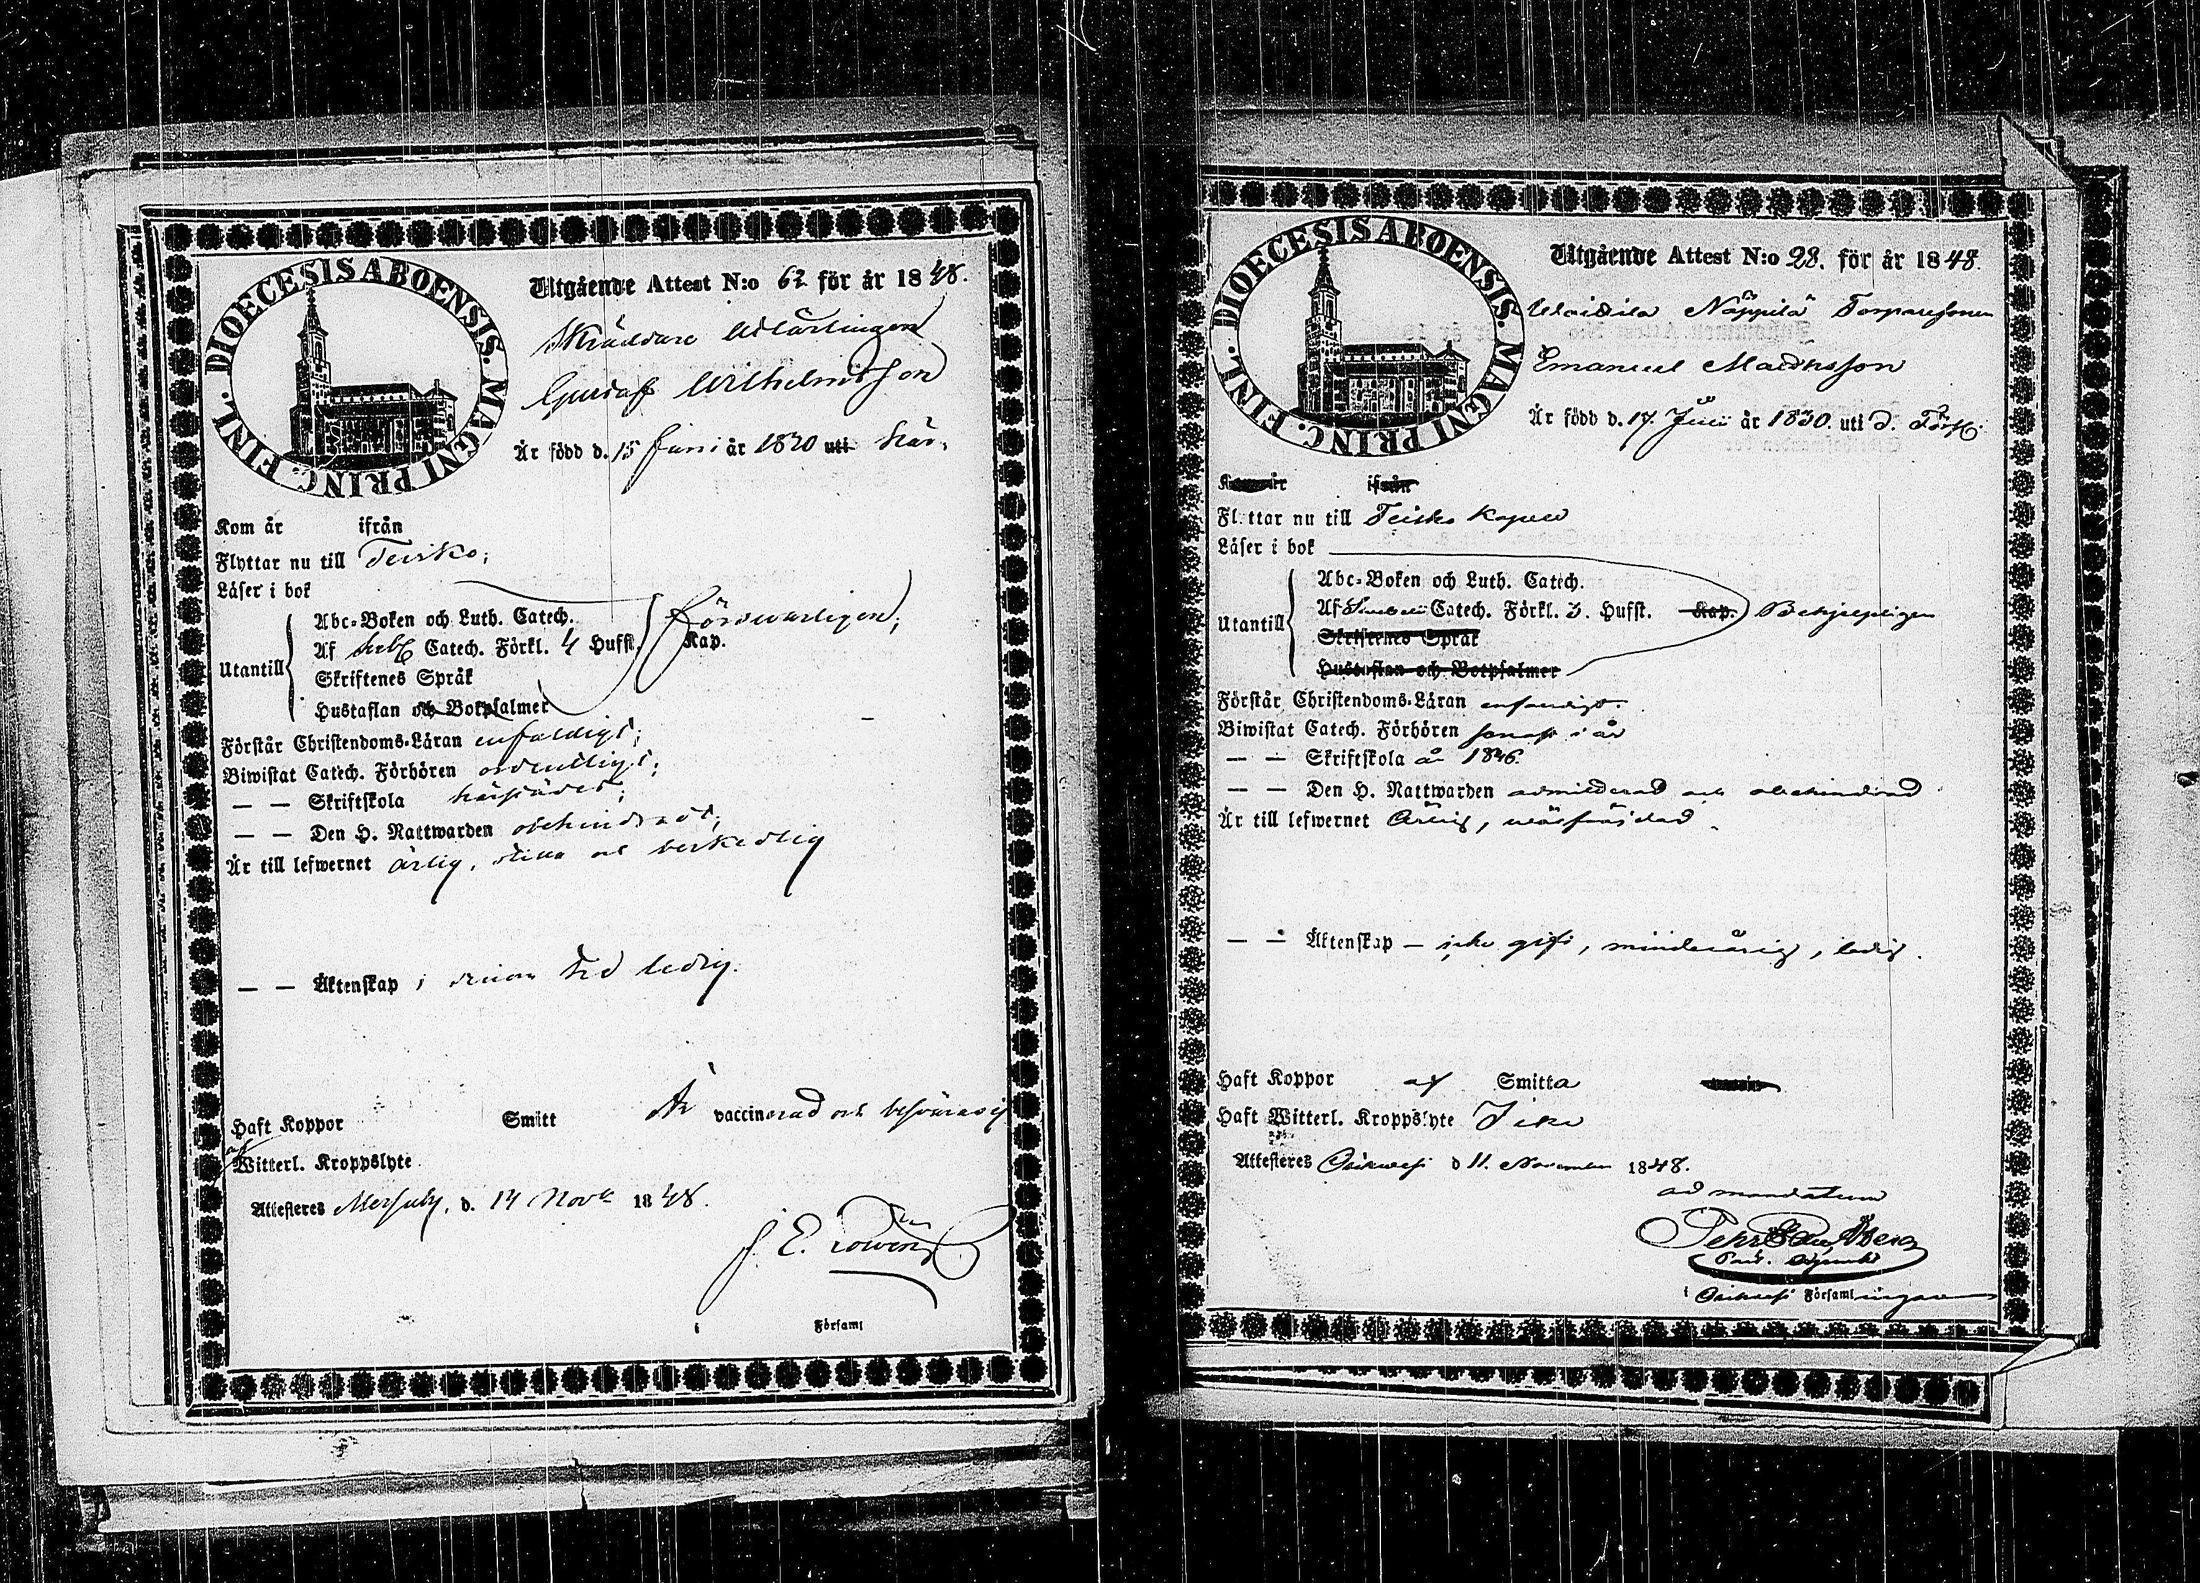 DIOECESIS ABOENSIS. MAGNI PRINC. FINL.
Utgående Attest N:o 62 för år 1848.
Skräddare Utlärlingen
Gustaf Wilhelmsson
Är född d. 15 Juni år 1820 uti här,
Kom år ifrån
Flyttar nu till Teisko;
Läser i bok
Abc-Boken och Luth. Catech.
försvarligen;
Af Catech. Förkl. 4 Hufst. Kap.
Utantill
Skriftenes Språk
Hustaflan och Botpsalmer
Förstår Christendoms-Läran enfaldigt;
Biwistat Catech. Förhören ordentligt;
— — Skriftskola härstädes;
— — Den H. Nattwarden obehindradt;
Är till lefwernet ärlig, stilla och beskedlig
— — Äktenskap ledig.
Haft Koppor Smitt Är vaccinerad och
Witterl. Kroppslyte
Attesteres d. 14 Nov 1848.
J. E.
i Församl
DIOECESIS ABOENSIS. MAGNI PRINC. FINL.
Utgående Attest N:o 28. för år 1848.
Näppilä Torparesonen
Emanuel Mathsson
Är född d. 17. år 1830. uti d. Förs.
Kom år ifrån
Flyttar nu till Teisko Kapell
Läser i bok
Abc-Boken och Luth. Catech.
Af Catech. Förkl. 3. Hufst. Kap. Behjelpligen
Utantill
Skriftenes Språk
Hustaflan och Botpsalmer
Förstår Christendoms-Läran enfaldigt.
Biwistat Catech. Förhören i år
— — Skriftskola år 1846.
— — Den H. Nattwarden admitterad och obehindrad
Är till lefwernet Ärlig, wälfräjdad.
— — Äktenskap — icke gift, minderårig, ledig.
Haft Koppor af Smitta
Haft Witterl. Kroppslyte Icke
Attesteres Orihvesi d 11. November 1848.
ad mandatum
i Orihvesi Församlingar